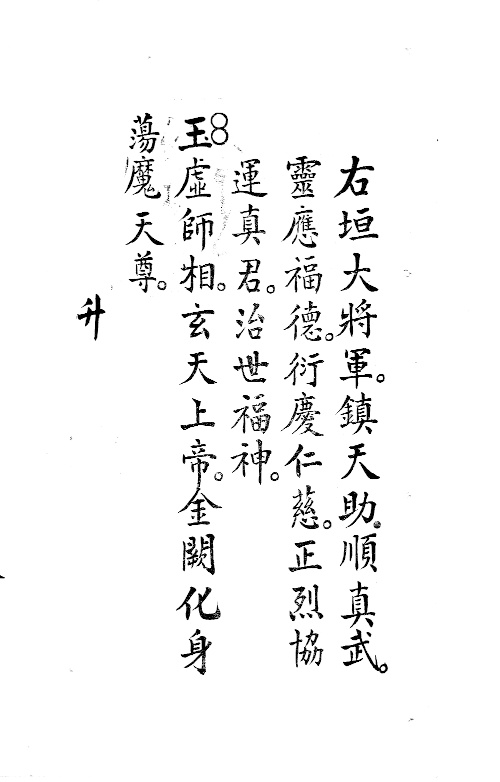 右垣大將軍。鎮天助。順真武。
靈應福德。衍慶仁慈。正烈協
運真君。治世福神。
玉虛師相。玄天上帝。金闕化身
蕩魔天尊。
升